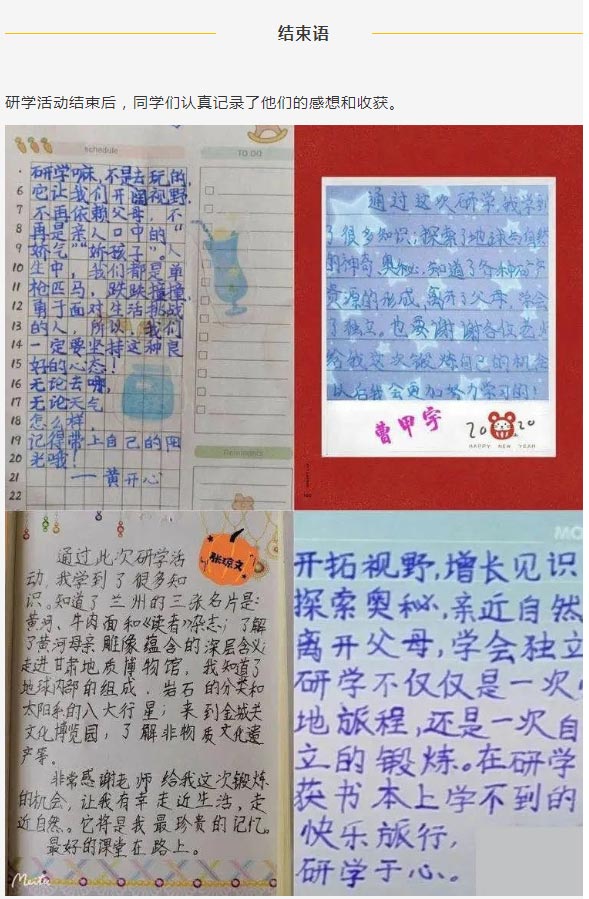 结束语
研学活动结束后，同学们认真记录了他们的感想和收获。
schedule
TO DO
研学嘛,不是去玩的,
6 它让我们开阔视野,
7 不再依赖父母，不
8 再是亲人口中的“
9 娇气”“娇孩子”。人
10 生中，我们都是单
11 枪匹马，跌跌撞撞,
12 勇于面对生活挑战
13 的人，所以，我们
14 一定要坚持这种良
15 好的心态！
16 无论去哪,
17 无论天气
18 怎么样,
19 记得带上自己的阳
20 光哦!
21 ——黄开心
22
Reminders
通过这次研学,我学到
了很多知识;探索了地球与自然
的神奇奥秘,知道了各种矿产
资源的形成,离开了父母,学会
了独立。也要谢谢各位老师
给我这次锻炼自己的机会
以后我会更加努力学习的!
曹甲宇
2020
HAPPY NEW YEAR
张琼文
通过此次研学活
动,我学到了很多知
识。知道了兰州的三张名片是:
黄河、牛肉面和《读者》杂志；了解
了黄河母亲雕像蕴含的深层含义;
走进甘肃地质博物馆，我知道了
地球内部的组成、岩石的分类和
太阳系的八大行星；来到金城关
文化博览园，了解非物质文化遗
产等。
非常感谢老师给我这次锻炼
的机会,让我有幸走近生活,走
近自然。它将是我最珍贵的记忆。
最好的课堂在路上。
Meitu
MO
开拓视野,增长见识
探索奥秘,亲近自然
离开父母,学会独立
研学不仅仅是一次
地旅程,还是一次自
立的锻炼。在研学
获书本上学不到的
快乐旅行,
研学于心。